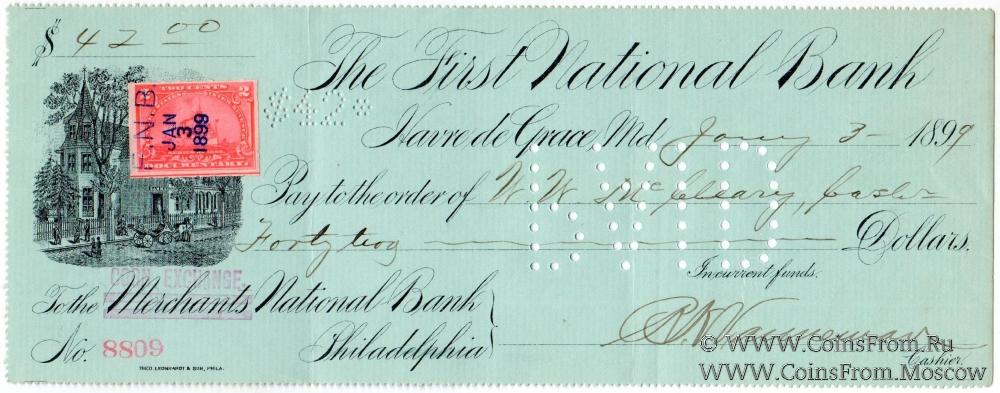 $ 42 00
The First National Bank
TWO CENTS 2
F.N.B
JAN
3
1899
DOCUMENTARY
$42*
Havre de Grace, Md. Jany 3 1899
Pay to the order of W. W. McCleary, Cash
Forty two Dollars.
In current funds.
CORN EXCHANGE
To the Merchants National Bank
Philadelphia
No. 8809
Cashier.
THEO. LEONHARDT & SON, PHILA.
© WWW.CoinsFrom.Ru
WWW.CoinsFrom.Moscow